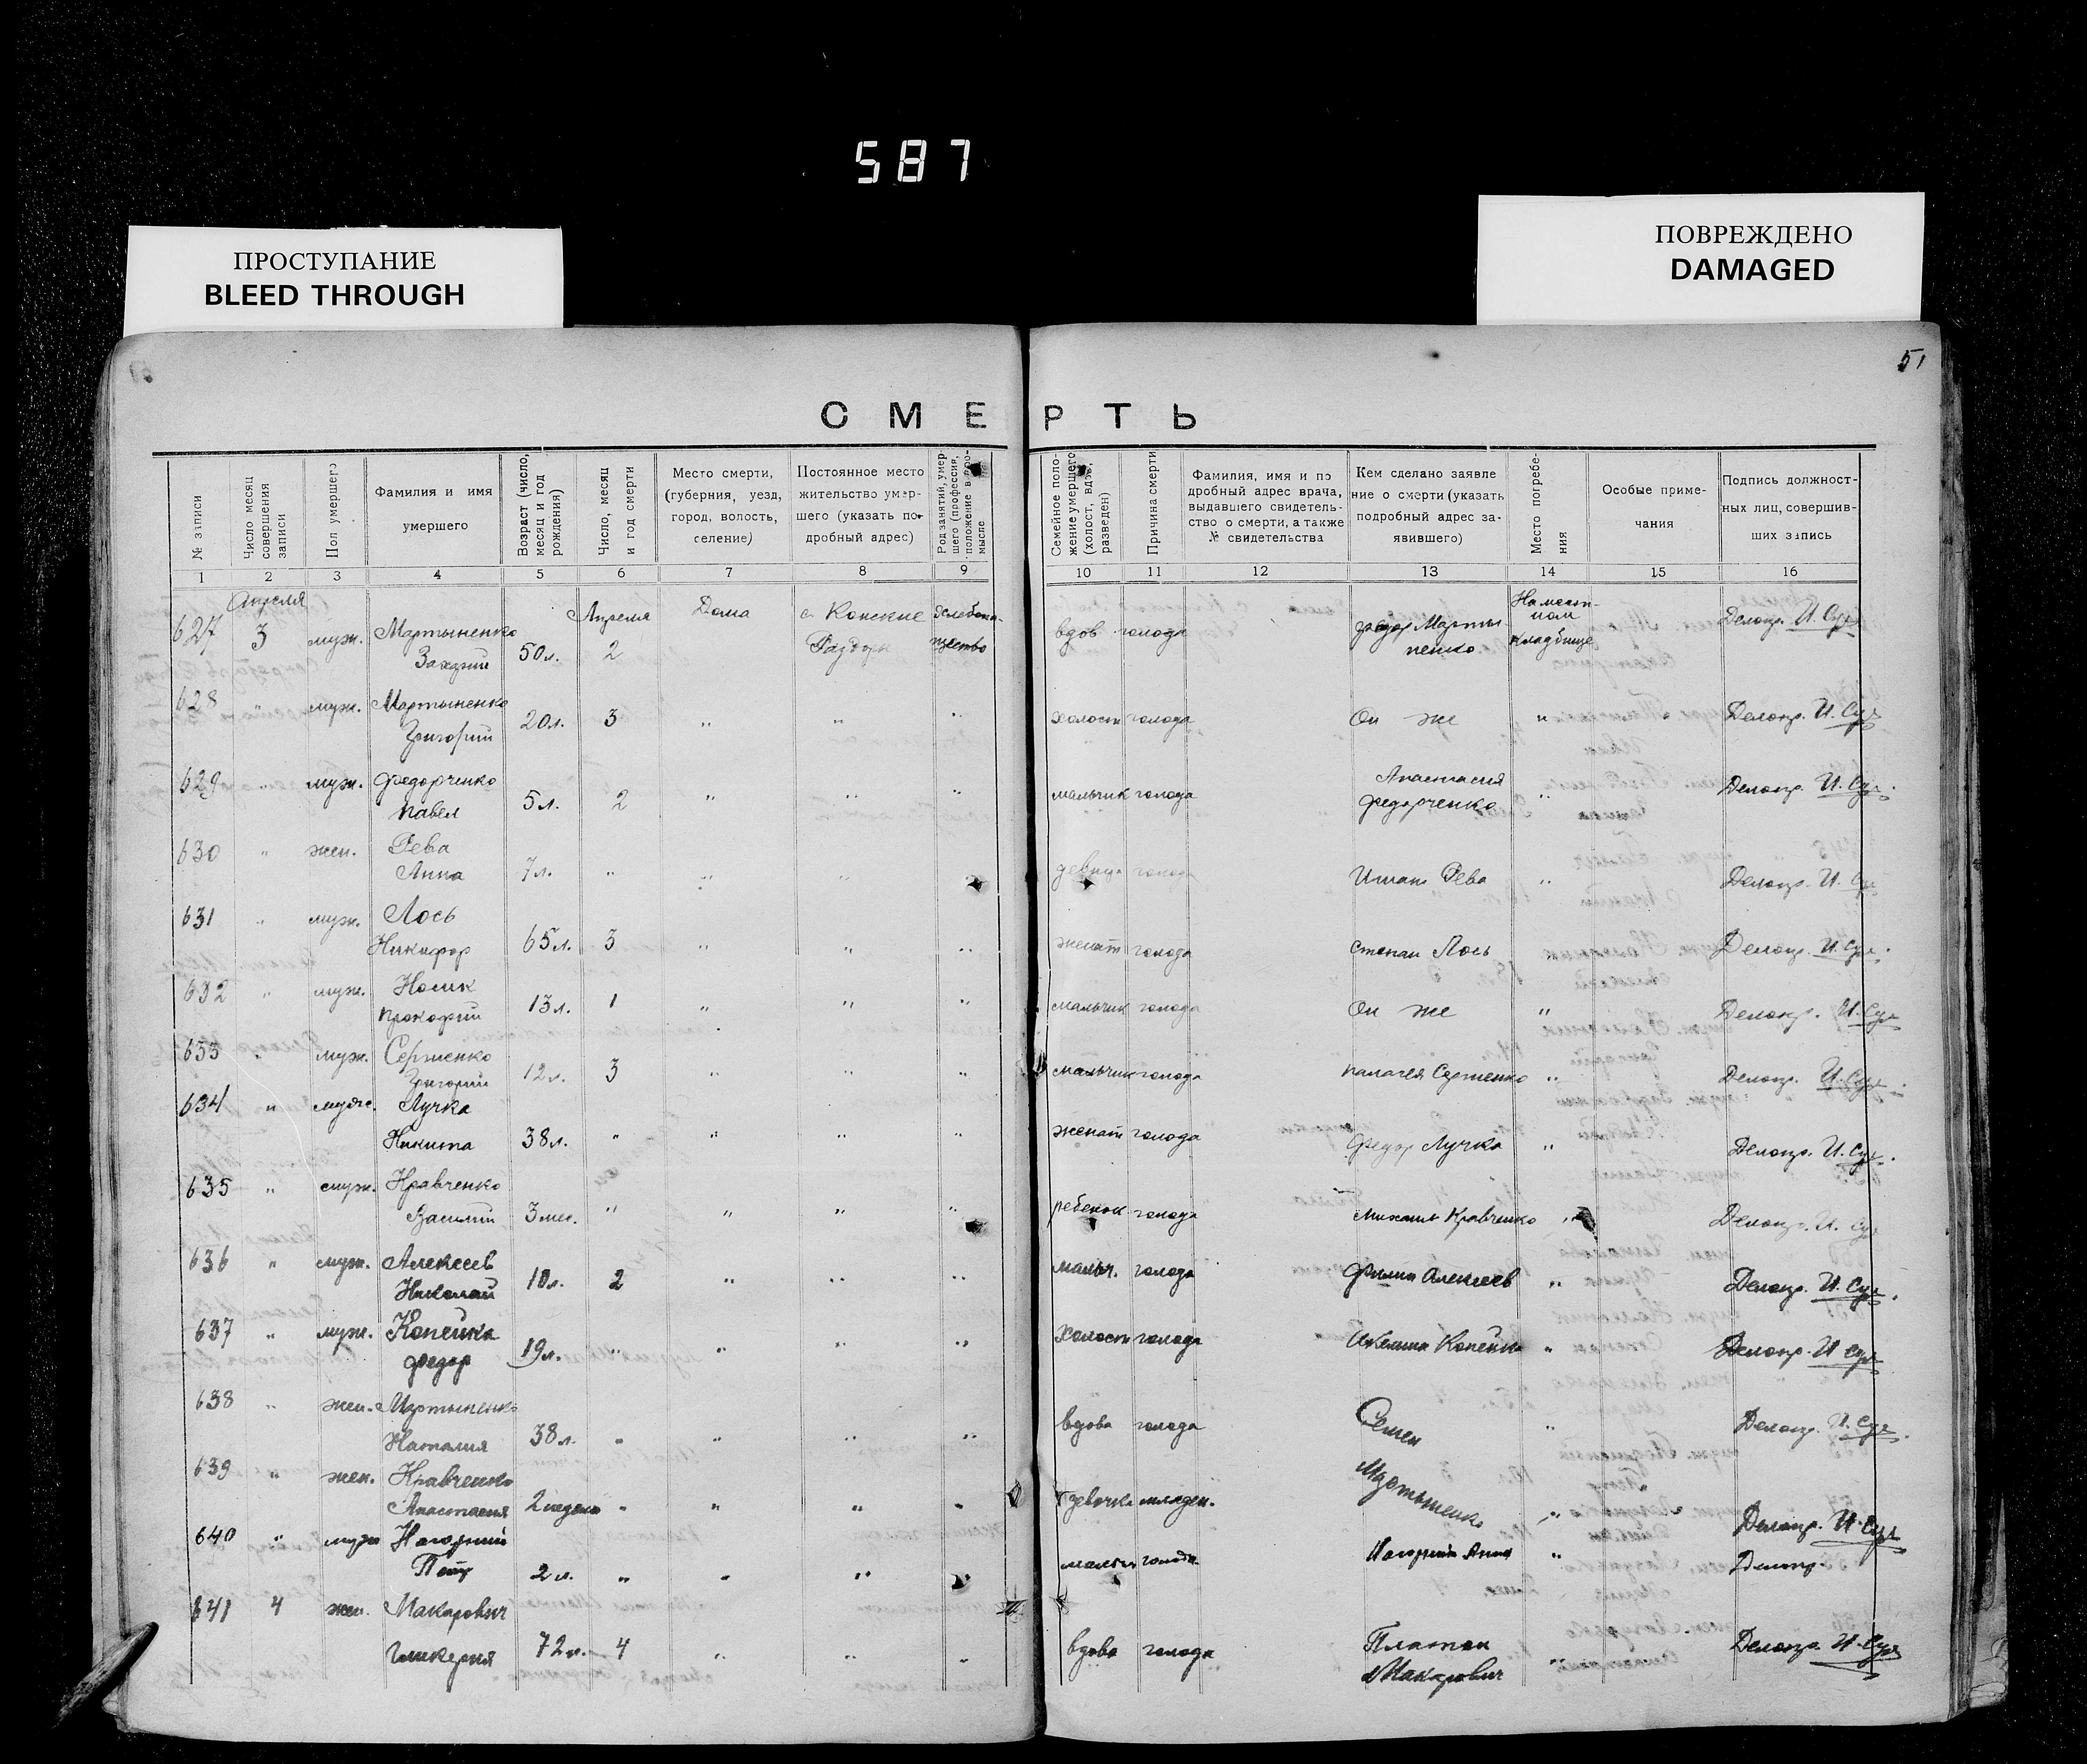 587
ПРОСТУПАНИЕ
BLEED THROUGH
ПОВРЕЖДЕНО
DAMAGED
51
СМЕРТЬ
№ записи
Число месяц совершения записи
Пол умершего
Фамилия и имя умершего
Возраст (число, месяц и год рождения)
Число, месяц и год смерти
Место смерти, (губерния, уезд, город, волость, селение)
Постоянное место жительство умершего (указать подробный адрес)
Род занятий, умершего (профессия, положение в промысле
Семейное положение умершего (холост, вдов, разведен)
Причина смерти
Фамилия, имя и подробный адрес врача, выдавшего свидетельство о смерти, а также № свидетельства
Кем сделано заявление о смерти (указать подробный адрес заявившего)
Место погребения
Особые примечания
Подпись должностных лиц, совершивших запись
1 2 3 4 5 6 7 8 9 10 11 12 13 14 15 16
627 Апреля 3 муж. Мартыненко Захарий 50 л. Апреля 2 Дома с. Конские Раздоры вдов голода Федор Мартыненко На местном кладбище Делопр. И.
628 " муж. Мартыненко Григорий 20 л. 3 " " " холост голода Он же " Делопр. И.
629 " муж. Федорченко Павел 5 л. 2 " " " мальчик голода Анастасия Федорченко " Делопр. И.
630 " жен. Рева Анна 7 л. " " " девица голода Рева " Делопр. И.
631 " муж. Лось Никифор 65 л. 3 " " " женат голода Степан Лось " Делопр. И.
632 " муж. Носик Прокофий 13 л. 1 " " " мальчик голода Он же " Делопр. И.
633 " муж. Сергиенко Григорий 12 л. 3 " " " мальчик голода Палагея Сергиенко " Делопр. И.
634 " муж. Лучка Никита 38 л. " " " " женат голода Федор Лучка " Делопр. И.
635 " муж. Кравченко Василий 3 мес. " " " " ребенок голода Михаил Кравченко " Делопр. И.
636 " муж. Алексеев Николай 10 л. 2 " " " мальч. голода Филип Алексеев " Делопр. И.
637 " муж. Копейка Федор 19 л. " " " " холост голода Копейка " Делопр. И.
638 " жен. Мартыненко Наталия 38 л. " " " " вдова голода Семен Мартыненко " Делопр. И.
639 " жен. Кравченко Анастасия 2 недели " " " " девочка младен. " Делопр. И.
640 " муж Нагорний Петр 2 л. " " " " голода Нагорний Анна " Делопр.
641 4 жен. Макарович Гликерия 72 л. 4 " " " вдова голода Платон Макарович " Делопр. И.